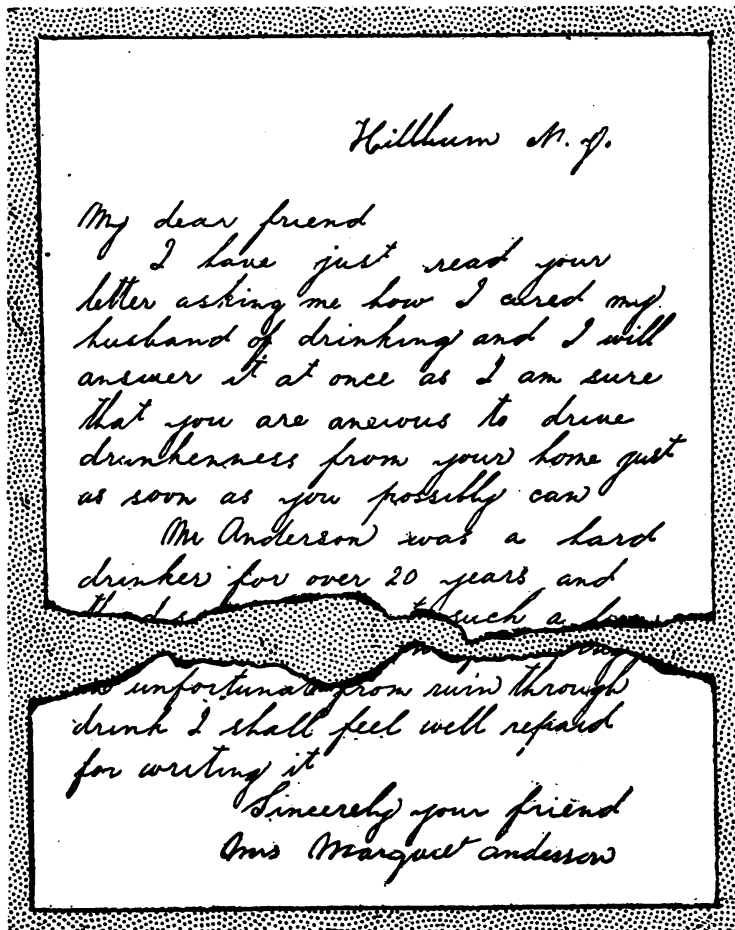 Hillburn N.Y.
My dear friend
I have just read your
letter asking me how I cured my
husband of drinking and I will
answer it at once as I am sure
that you are anxious to drive
drunkenness from your home just
as soon as you possibly can
Mr Anderson was a hard
drinker for over 20 years and
such a
unfortunate from ruin through
drink I shall feel well repaid
for writing it
Sincerely your friend
Mrs Margaret Anderson